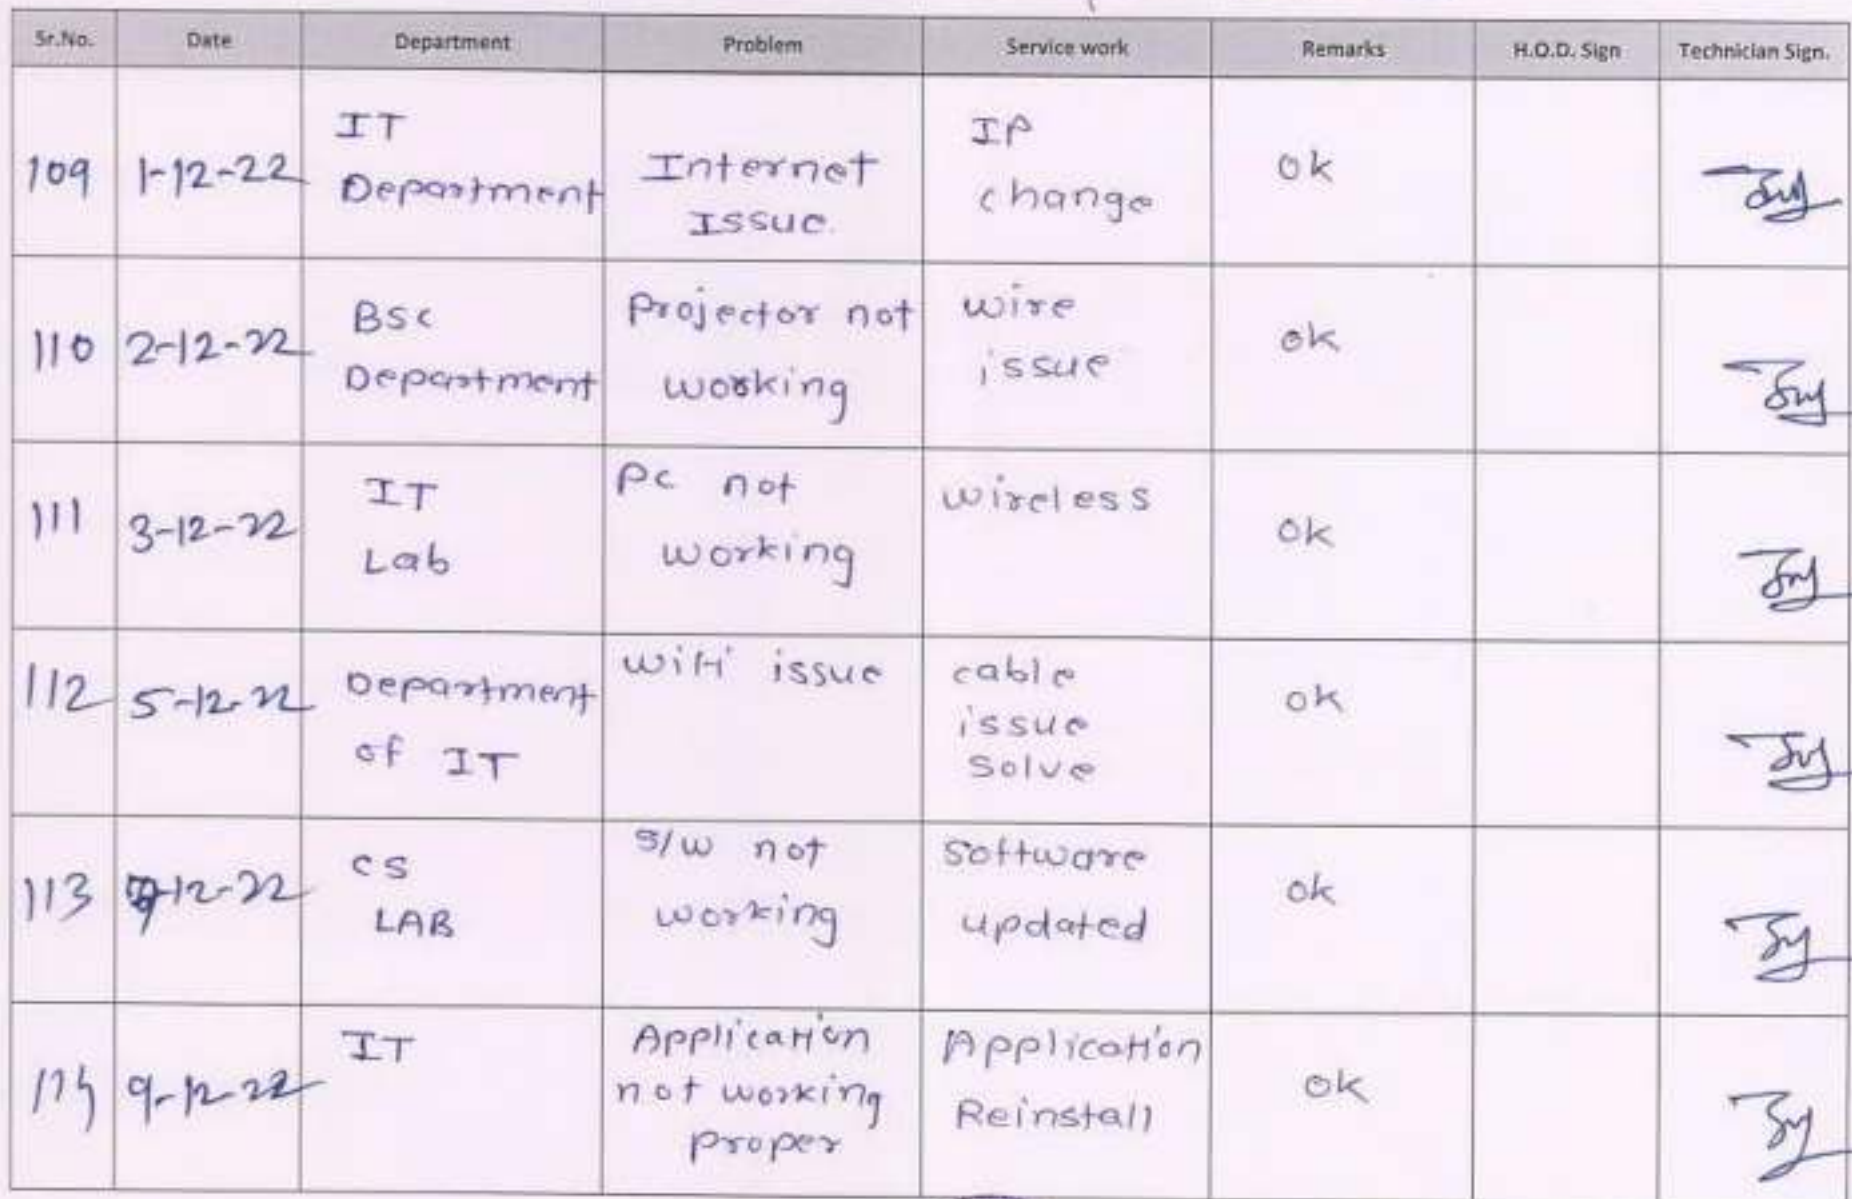 Sr.No. Date Department Problem Service work Remarks H.O.D. Sign Technician Sign.
109 1-12-22 IT Department Internet Issue. IP change ok
110 2-12-22 BSC Department Projector not working wire issue ok
111 3-12-22 IT Lab PC not working wireless ok
112 5-12-22 Department of IT wifi issue cable issue Solve ok
113 7-12-22 CS LAB S/W not working Software updated ok
114 9-12-22 IT Application not working proper Application Reinstall ok